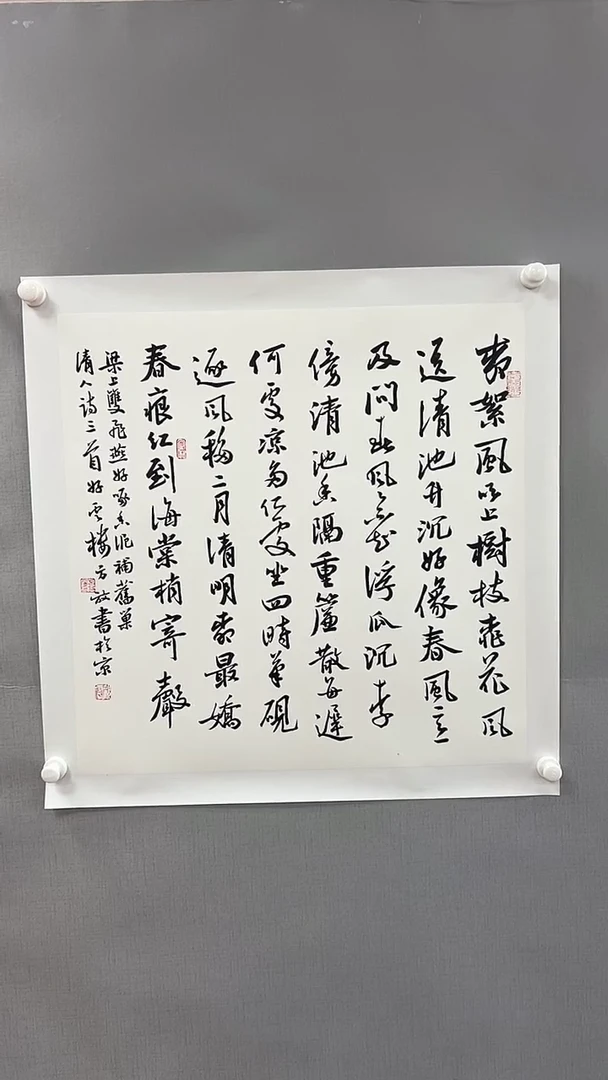 絮風吹上樹枝飛花風
送清池升沉好像春風意
及問春風知浮瓜沉李
傍清池香隔重簾散每遲
何處涼多何處坐四時筆硯
逐風移二月清明最嬌
春痕紅到海棠梢寄聲
梁上雙飛燕好啄香泥補舊巢
清人詩三首好雲樓方書於京